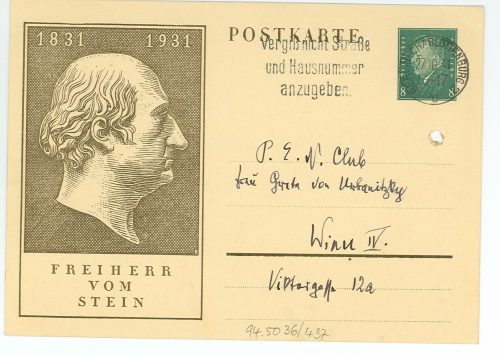 1831 1931
FREIHERR
VOM
STEIN
POSTKARTE
Vergiß nicht Straße
und Hausnummer
anzugeben.
CHARLOTTENBURG
8 8
P. E. N. Club
Frau Greta von Urbanitzky
Wien IV.
Viktorgasse 12a
94.5036/437